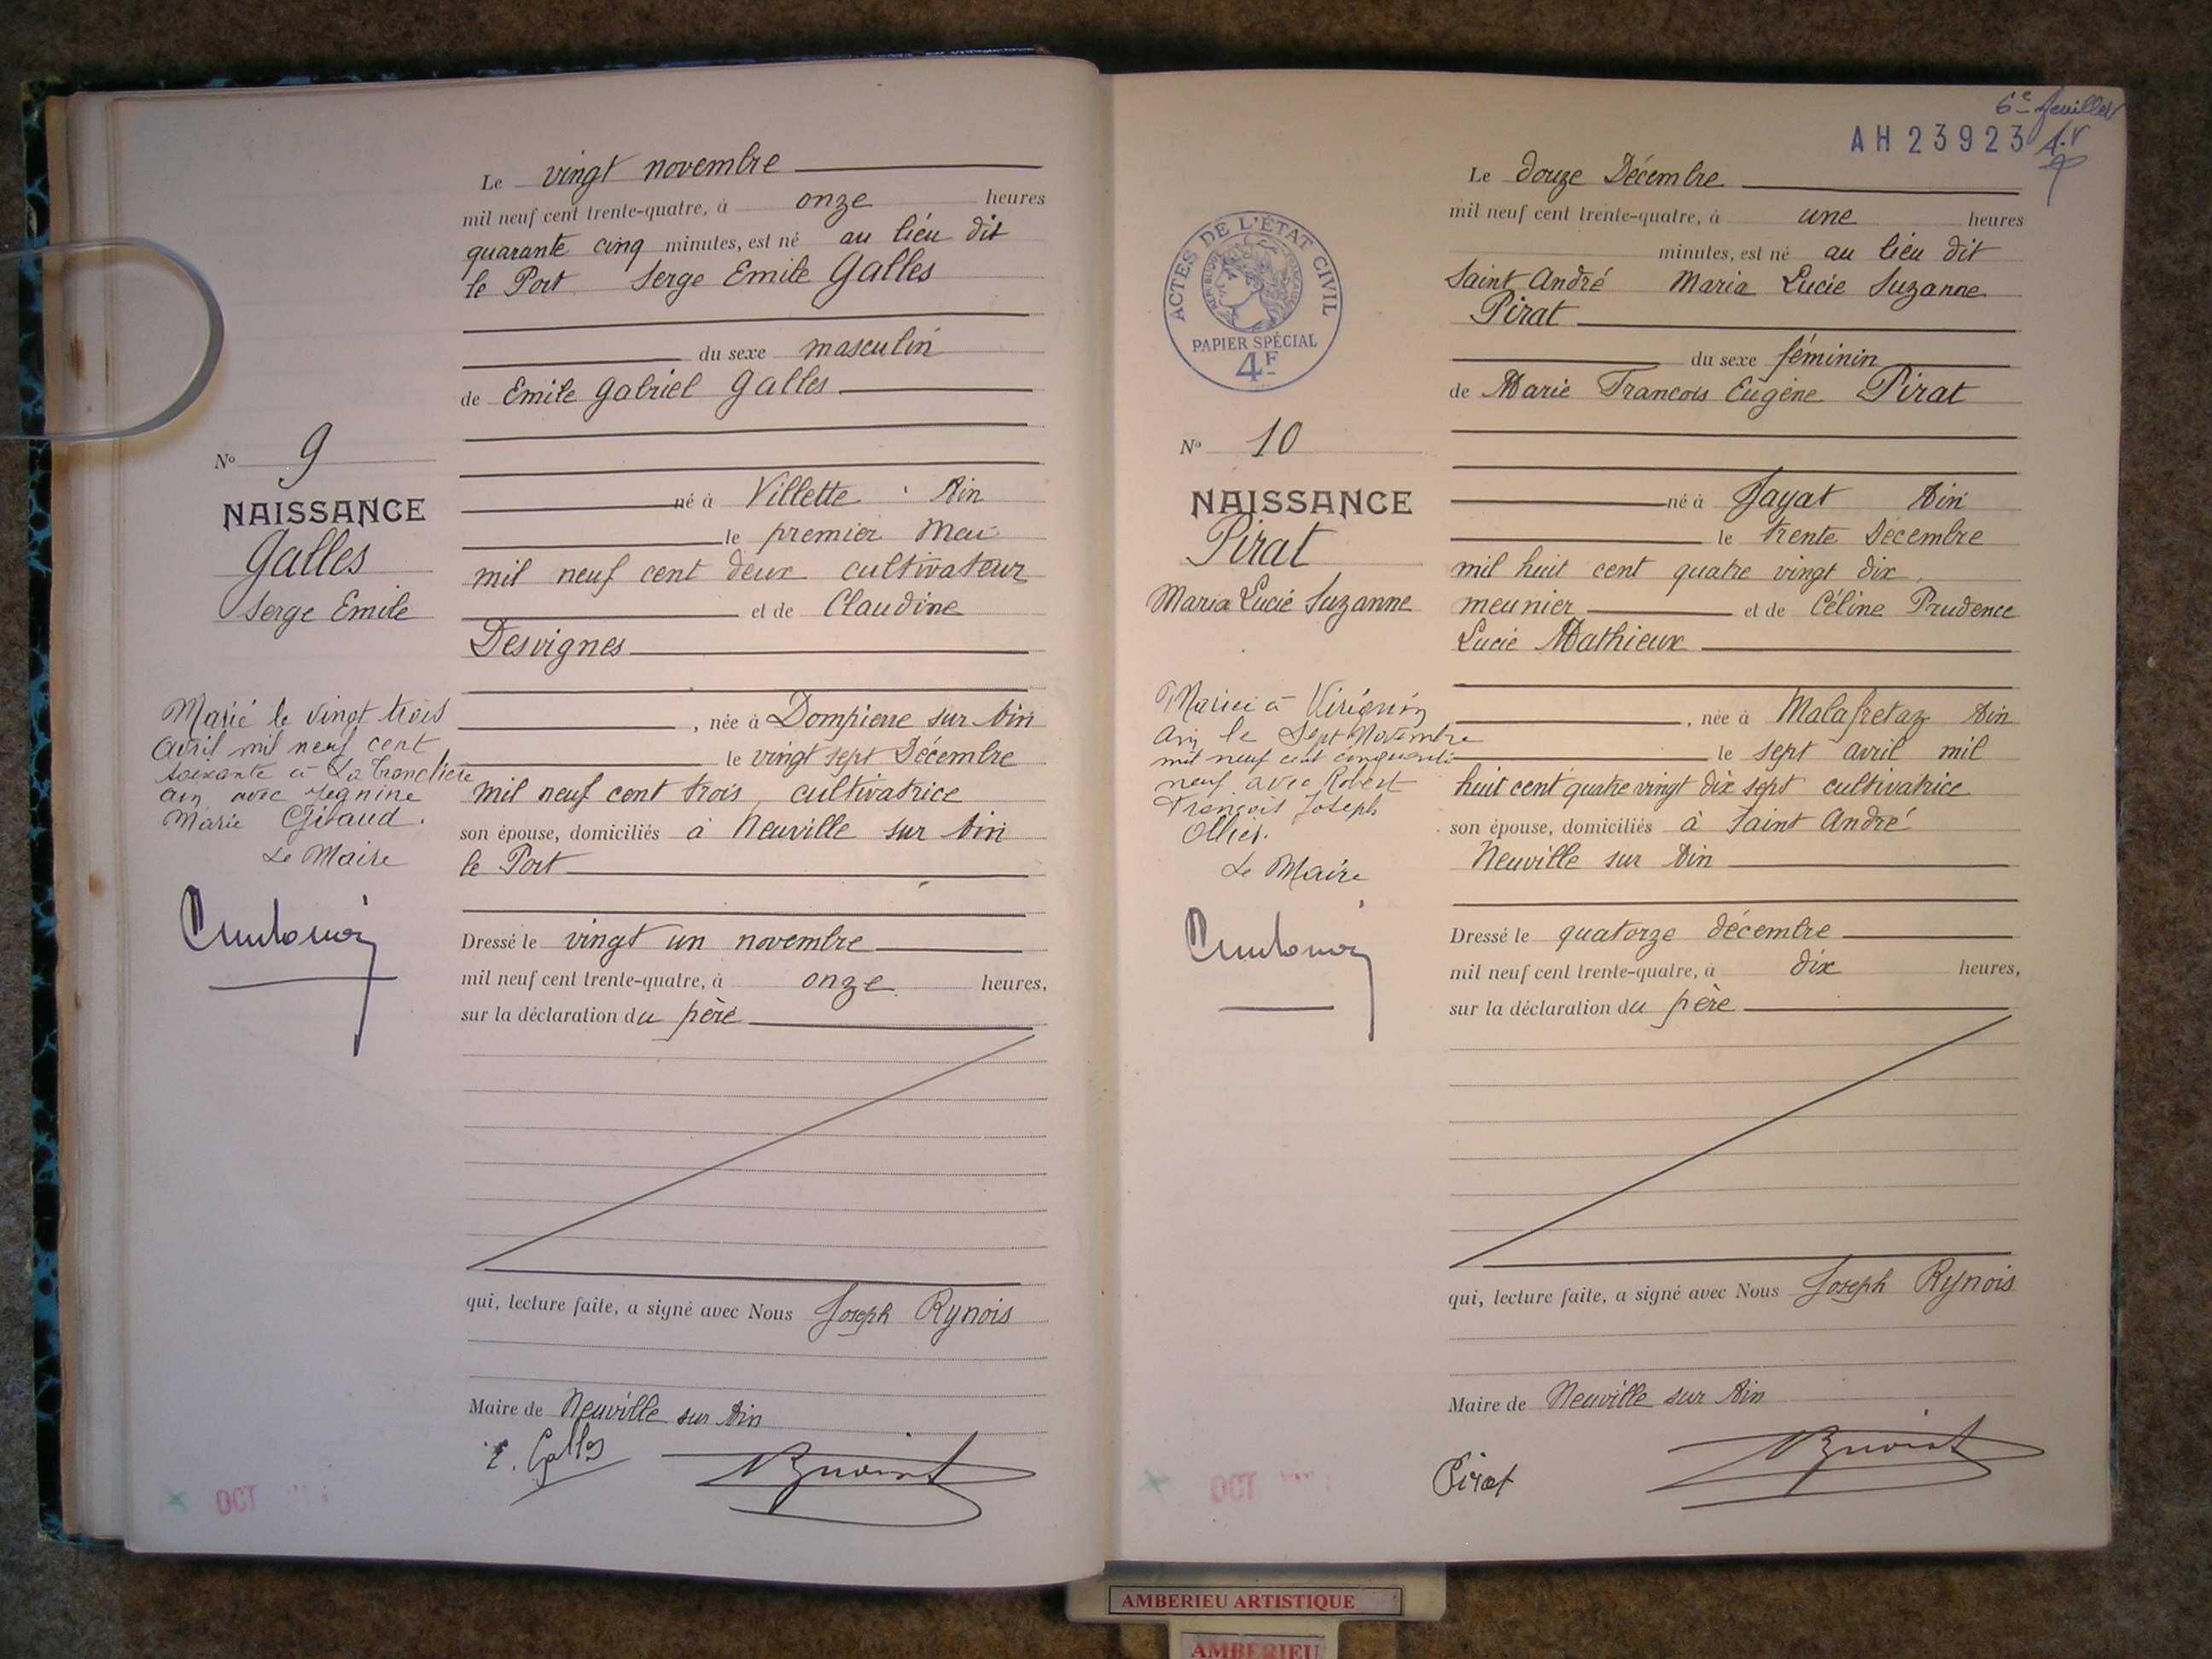 Le vingt novembre
mil neuf cent trente-quatre, à onze heures
quarante cinq minutes, est né au lieu dit
le Port Serge Emile Galles
du sexe masculin
de Emile Gabriel Galles
né à Villette Ain
le premier Mai
mil neuf cent deux cultivateur
et de Claudine
Desvignes
, née à Dompierre sur Ain
le vingt sept Décembre
mil neuf cent trois cultivatrice
son épouse, domiciliés à Neuville sur Ain
le Port
Dressé le vingt un novembre
mil neuf cent trente-quatre, à onze heures,
sur la déclaration du père
qui, lecture faite, a signé avec Nous Joseph Rynois
Maire de Neuville sur Ain
E. Galles
No 9
NAISSANCE
Galles
Serge Emile
Marié le vingt trois
avril mil neuf cent
soixante à La Tranclière
ain avec Jeanine
Marie Giraud.
Le Maire
OCT
6e feuillet
AH 23923
ACTES DE L'ÉTAT CIVIL
RÉPUBLIQUE FRANÇAISE
PAPIER SPÉCIAL
4F
No 10
NAISSANCE
Pirat
Maria Lucie Suzanne
Mariée à Virignin
Ain le Sept Novembre
mil neuf cent cinquante
neuf avec Robert
François Joseph
Ollier.
Le Maire
Le douze Décembre
mil neuf cent trente-quatre, à une heures
minutes, est né au lieu dit
Saint André Maria Lucie Suzanne
Pirat
du sexe féminin
de Marie Francois Eugène Pirat
né à Jayat Ain
le trente Décembre
mil huit cent quatre vingt dix
meunier et de Céline Prudence
Lucie Mathieux
, née à Malafretaz Ain
le sept avril mil
huit cent quatre vingt dix sept cultivatrice
son épouse, domiciliés à Saint André
Neuville sur Ain
Dressé le quatorze décembre
mil neuf cent trente-quatre, à dix heures,
sur la déclaration du père
qui, lecture faite, a signé avec Nous Joseph Rynois
Maire de Neuville sur Ain
Pirat
OCT
AMBERIEU ARTISTIQUE
AMBERIEU